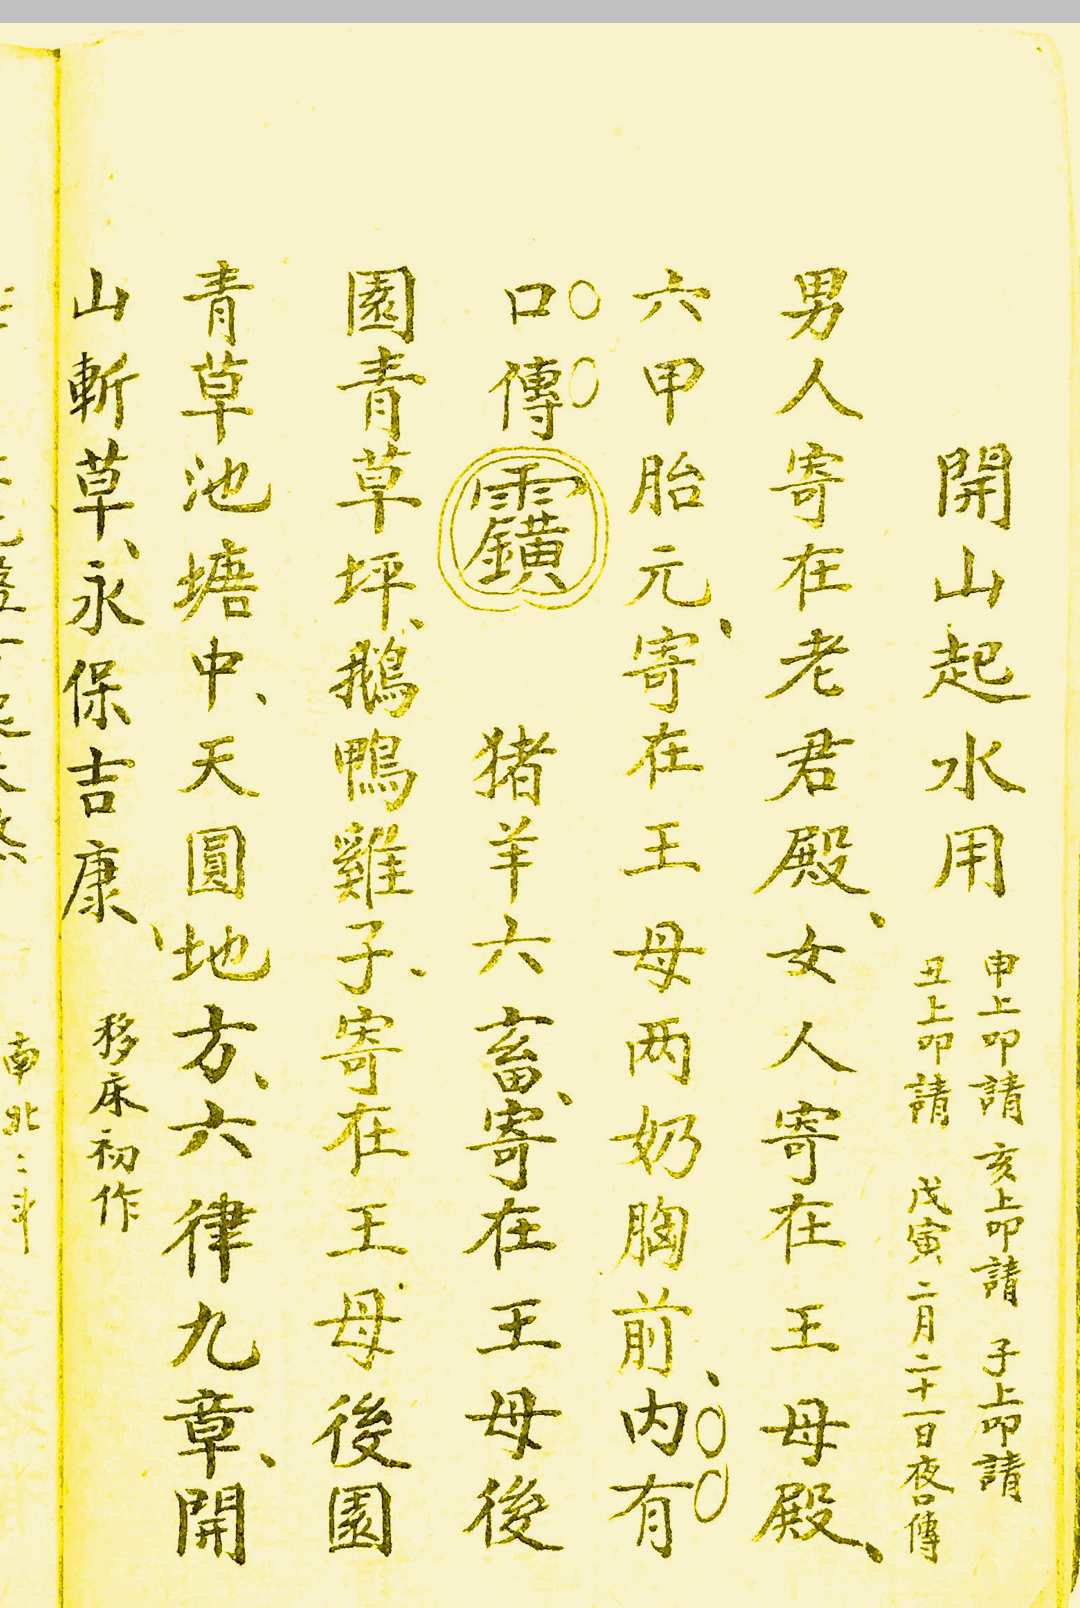 開山起水用
申上叩請 亥上叩請 子上叩請
丑上叩請 戊寅二月二十一日夜口傳
男人寄在老君殿、女人寄在王母殿、
六甲胎元、寄在王母两奶胸前、内有
口傳 猪羊六畜、寄在王母後
園青草坪、鵝鴨雞子、寄在王母後園
青草池塘中、天圓地方、六律九章、開
山斬草、永保吉康、
移床初作
南北二斗